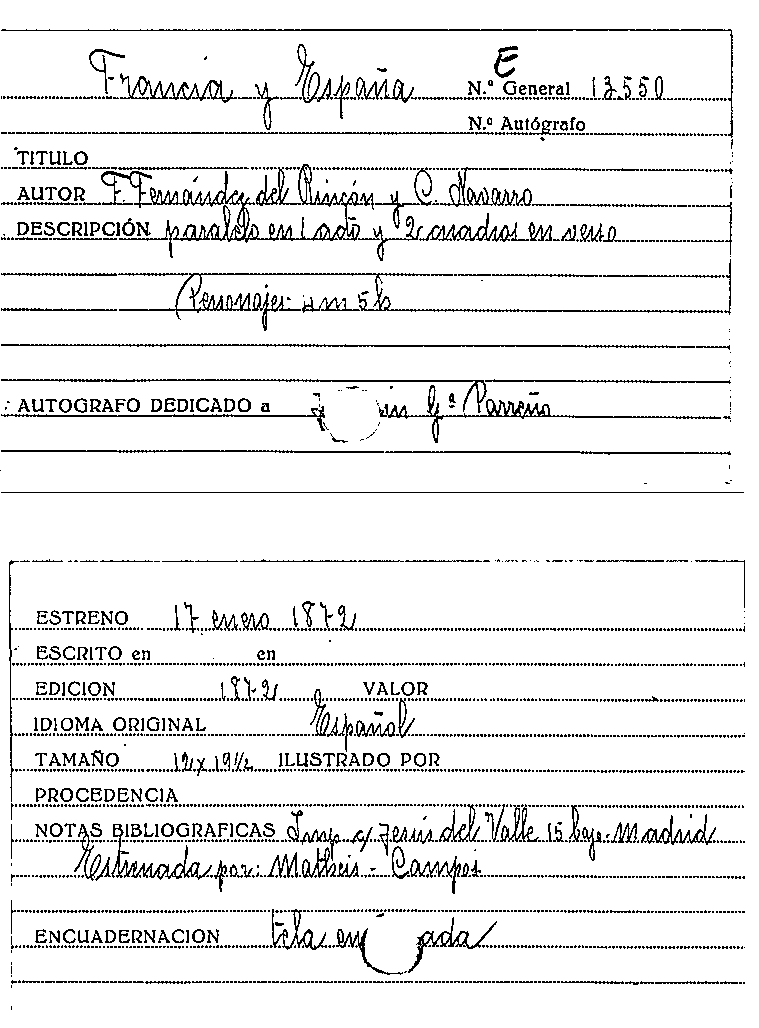 Francia y España E
N.º General 13.550
N.º Autógrafo
TITULO
AUTOR F. Fernández del Rincón y C. Navarro
DESCRIPCIÓN paralelo en 1 acto y 2 cuadros en verso
Personajes- 4m 5h
AUTOGRAFO DEDICADO a Gª Parreño
ESTRENO 17 enero 1872
ESCRITO en en
EDICION 1872 VALOR
IDIOMA ORIGINAL Español
TAMAÑO 12 x 19½ ILUSTRADO POR
PROCEDENCIA
NOTAS BIBLIOGRAFICAS Imp c/ Jesús del Valle 15 bajo. Madrid
Estrenada por: Matheis - Campos
ENCUADERNACION tela